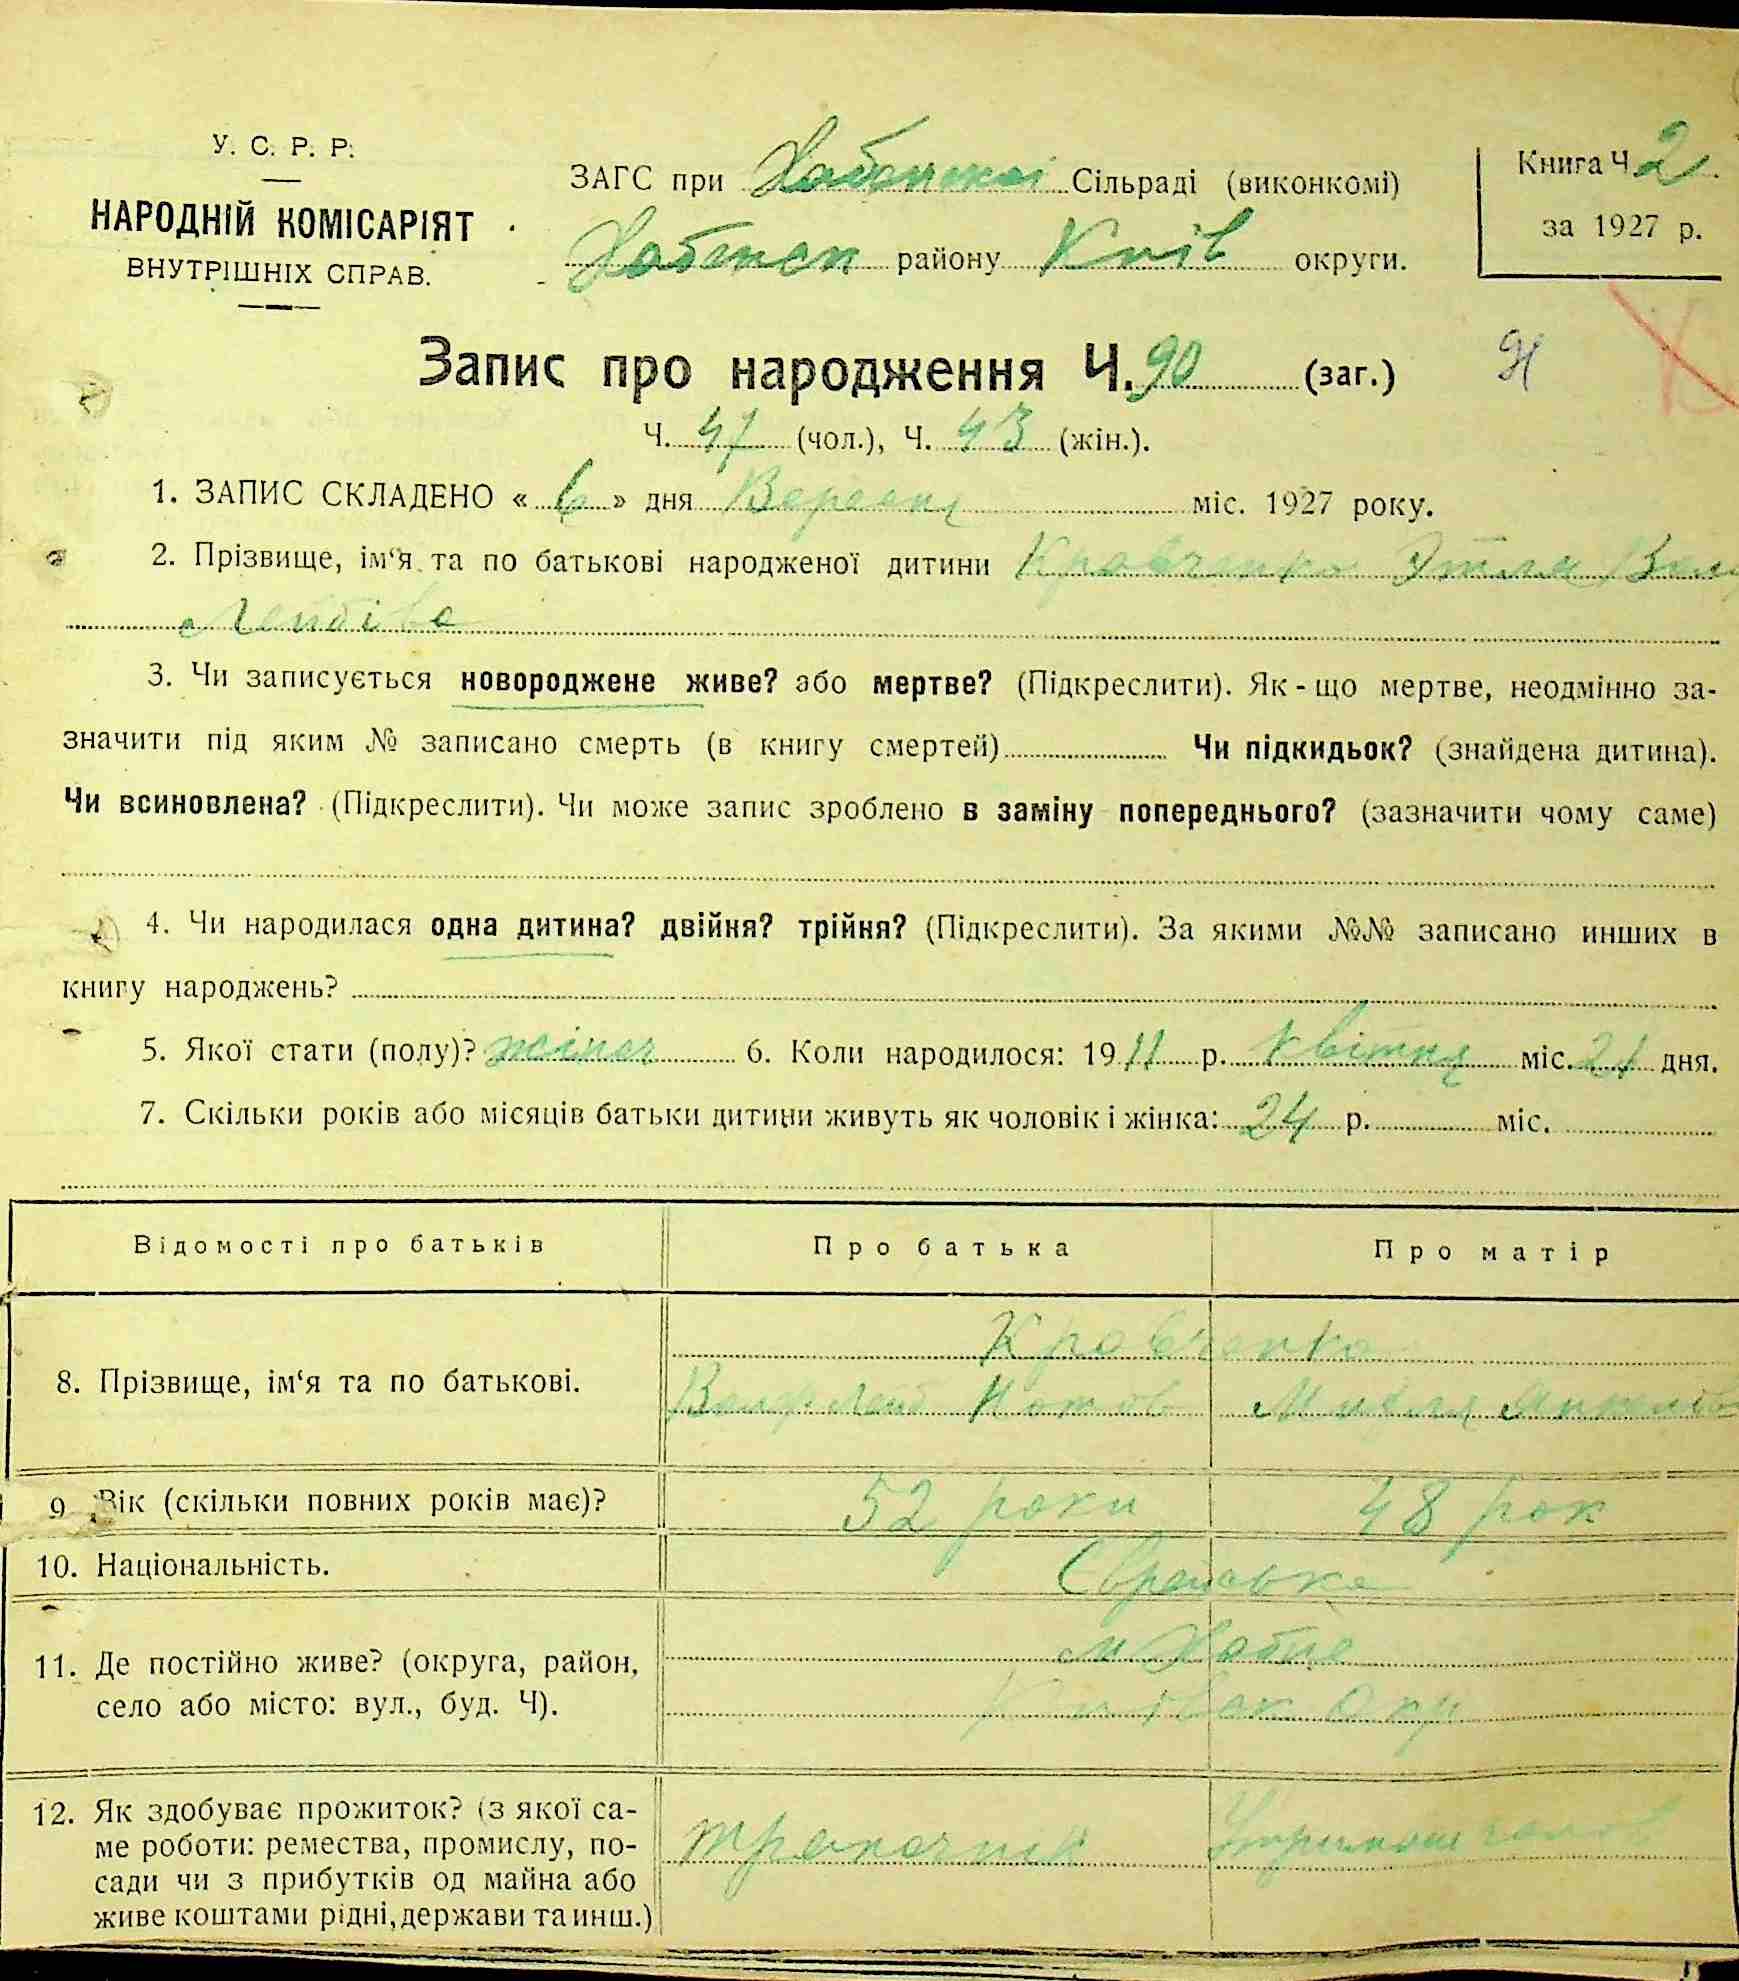 У. С. Р. Р.
НАРОДНІЙ КОМІСАРІЯТ
ВНУТРІШНІХ СПРАВ.
ЗАГС при Хабенській Сільраді (виконкомі)
Хабенск району Київ округи.
Книга Ч. 2
за 1927 р.
Запис про народження Ч. 90 (заг.)
91
Ч. 47 (чол.), Ч. 43 (жін.).
1. ЗАПИС СКЛАДЕНО « 6 » дня Вересня міс. 1927 року.
2. Прізвище, ім‘я та по батькові народженої дитини Кравченко Этля Воль
Лейбіва
3. Чи записується новороджене живе? або мертве? (Підкреслити). Як-що мертве, неодмінно за-
значити під яким № записано смерть (в книгу смертей) Чи підкидьок? (знайдена дитина).
Чи всиновлена? (Підкреслити). Чи може запис зроблено в заміну попереднього? (зазначити чому саме)
4. Чи народилася одна дитина? двійня? трійня? (Підкреслити). За якими №№ записано инших в
книгу народжень?
5. Якої стати (полу)? жіноч 6. Коли народилося: 1911 р. квітня міс. 21 дня.
7. Скільки років або місяців батьки дитини живуть як чоловік і жінка: 24 р. міс.
Відомості про батьків Про батька Про матір
Кравченко
8. Прізвище, ім‘я та по батькові.
Вольф Лейб Нотов
9. Вік (скільки повних років має)? 52 роки 48 рок
10. Національність. Єврейська
11. Де постійно живе? (округа, район,
село або місто: вул., буд. Ч).
м Хабне
Київськ Окр
12. Як здобуває прожиток? (з якої са-
ме роботи: ремества, промислу, по-
сади чи з прибутків од майна або
живе коштами рідні, держави та инш.)